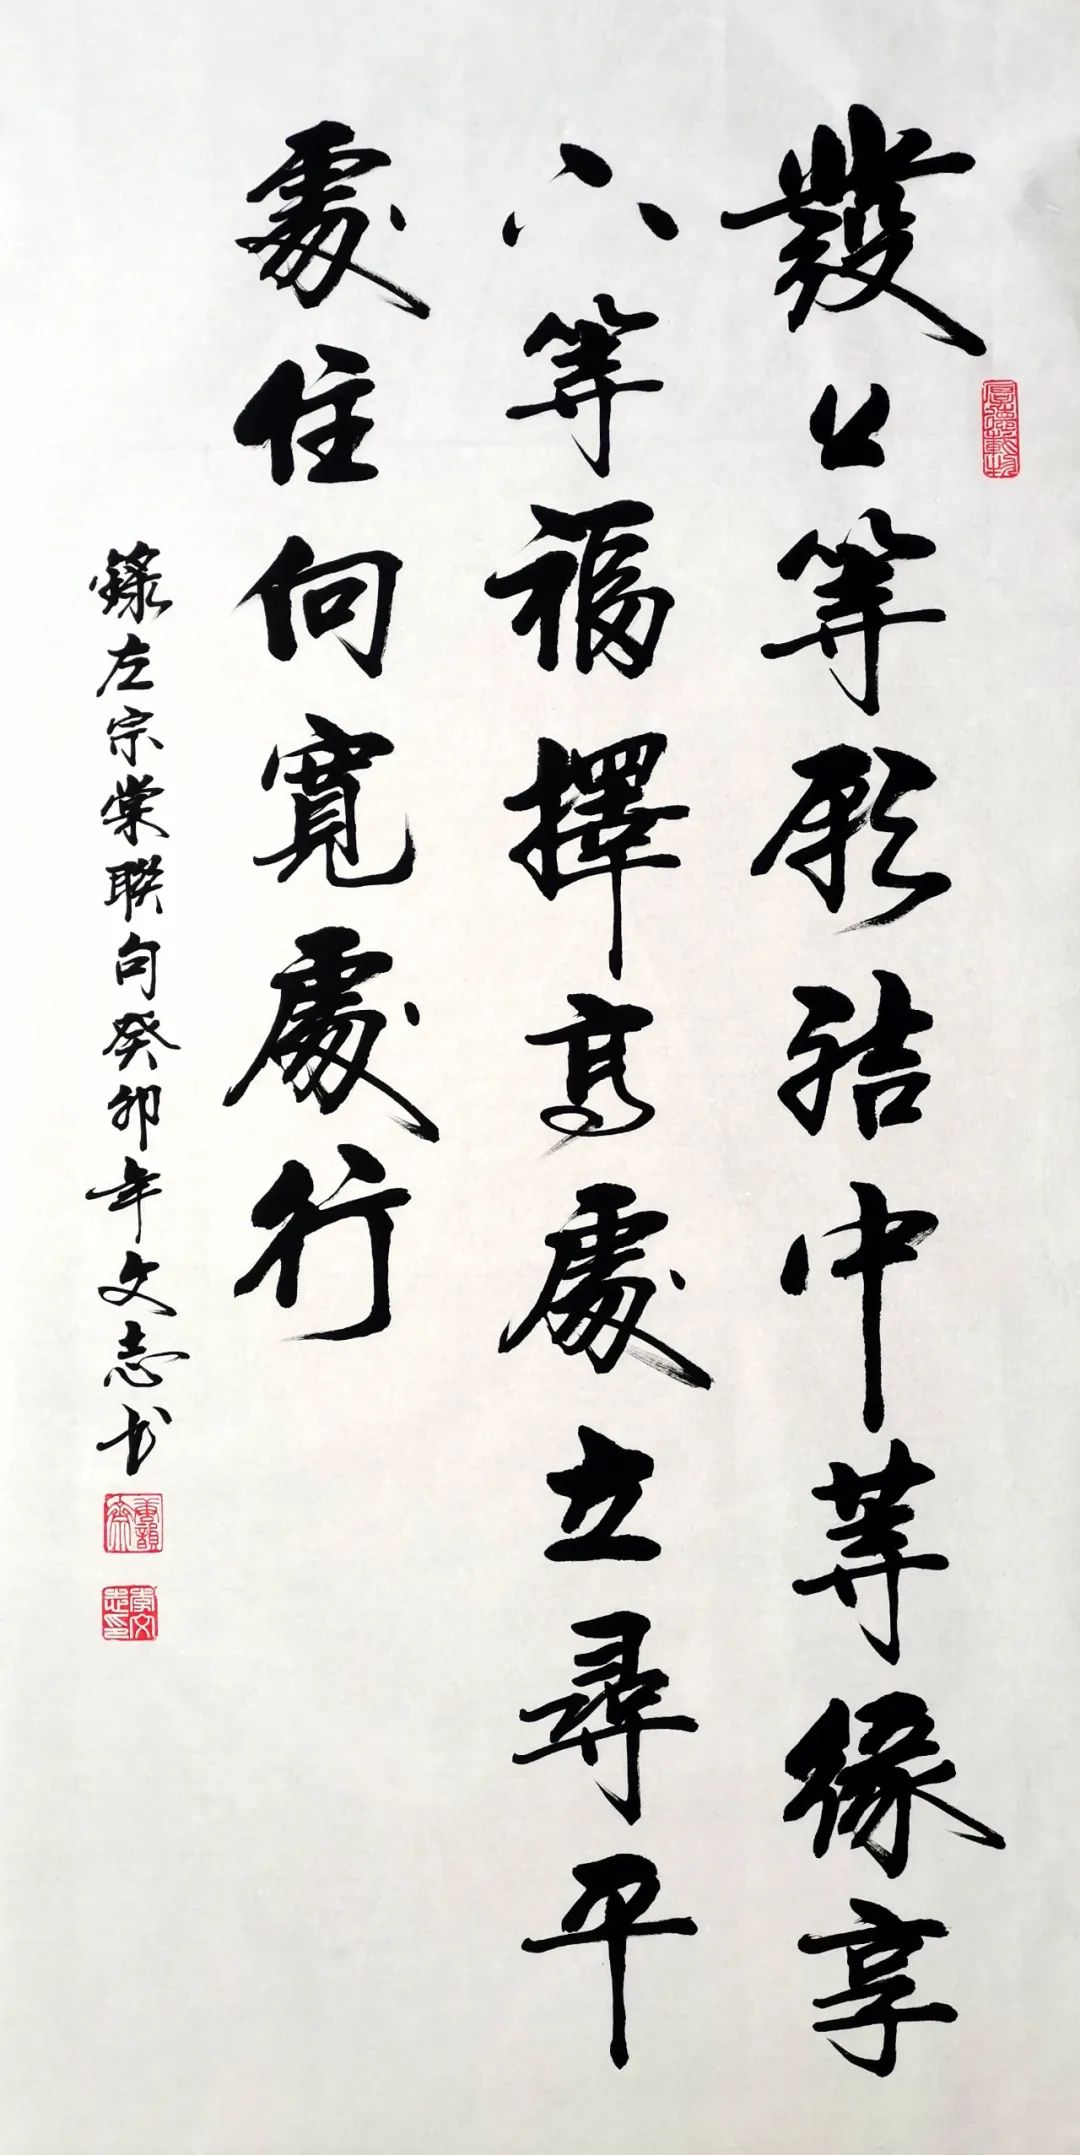 發上等願結中等緣享
下等福擇高處立尋平
處住向寬處行
錄左宗棠聯句癸卯年文志书
厚德載物
李文志印